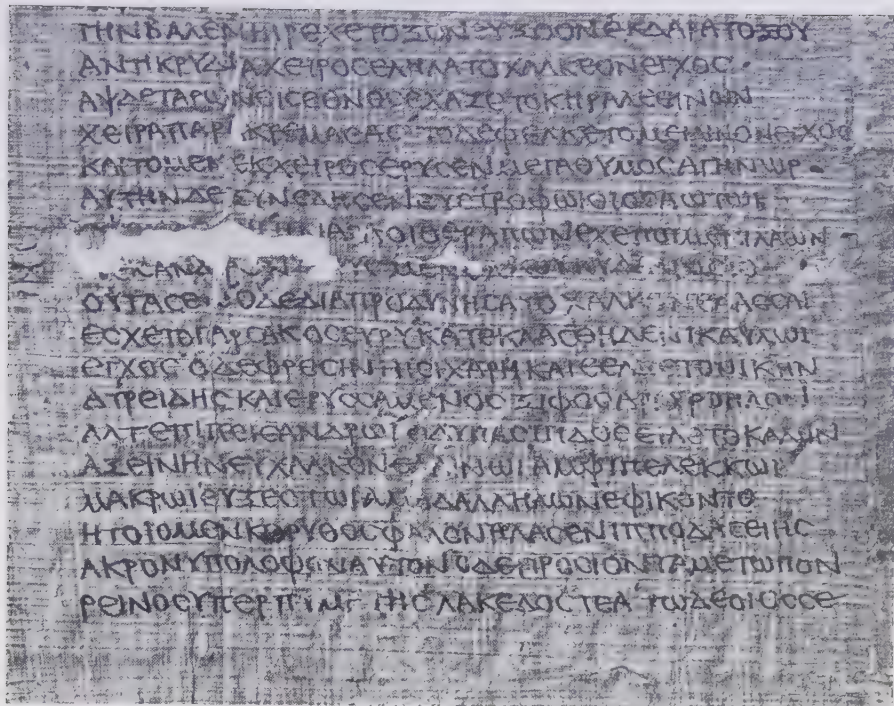 ΤΗΝΒΑΛΕΝΗΙΡΕΧΕΤΟΞΟΝΕΥΞΟΟΝΕΚΔΑΡΑΤΟΞΟΥ
ΑΝΤΙΚΡΥΔΙΑΧΕΙΡΟCΕΛΗΛΑΤΟΧΑΛΚΕΟΝΕΓΧΟC
ΑΨΔΕΤΑΡΩΝΟΙCΕΘΝΟCΕΧΑΖΕΤΟΚΗΡΑΛΕΕΙΝΩΝ
ΧΕΙΡΑΠΑΡ ΚΡΕΜΑCΑC ΤΟΔΕΦΕΛΚΕΤΟΜΕΙΛΙΝΟΝΕΓΧΟC
ΚΑΙΤΟΜΕΝ ΕΚΧΕΙΡΟCΕΡΥCΕΝΜΕΓΑΘΥΜΟCΑΓΗΝΩΡ
ΑΥΤΗΝΔΕ ΞΥΝΕΔΗCΕΝΕΥCΤΡΟΦΩΙΟΙΟCΑΩΤΩΙ
ΟΙΘΕΡΑΠΩΝΕΧΕΠΟΙΜΕΝΙΛΑΩΝ
CΑΝΔ
ΟΥΤΑCΕ ΟΔΕΔΙΑΠΡΟΔΥΝΗCΑΤΟΧΑΛΚ
ΕCΧΕΤΟΓΑΡCΑΚΟCΕΥΡΥΚΑΤΕΚΛΑCΘΗΔΕΝΙΚΑΥΛΩΙ
ΕΓΧΟC ΟΔΕΦΡΕCΙΝΗΙCΙΧΑΡΗΚΑΙΕΕΛΠΕΤΟΝΙΚΗΝ
ΑΤΡΕΙΔΗCΚΑΙΕΡΥCCΑΜΕΝΟCΞΙΦΟCΑΡΓΥΡΟΗΛΟΝ
ΑΛΤΕΠΙΠΕΙCΑΝΔΡΩΙ ΟΔΥΠΑCΠΙΔΟCΕΙΛΕΤΟΚΑΛΗΝ
ΑΞΕΙΝΗΝΕΥΧΑΛΚΟΝΕΛΑΙΝΩΙΑΜΦΙΠΕΛΕΚΚΩΙ
ΜΑΚΡΩΙΕΥΞΕCΤΩΙΑΜΑΔΑΛΛΗΛΩΝΕΦΙΚΟΝΤΟ
ΗΤΟΙΟΜΕΝΚΟΡΥΘΟCΦΑΛΟΝΗΛΑCΕΝΙΠΠΟΔΑCΕΙΗC
ΑΚΡΟΝΥΠΟΛΟΦΟΝΑΥΤΟΝ ΟΔΕΠΡΟCΙΟΝΤΑΜΕΤΩΠΟΝ
ΡΕΙΝΟCΥΠΕΡΠΥΜΑΤΗC ΛΑΚΕΔΟCΤΕΑ ΤΩΔΕΟΙΟCCΕ